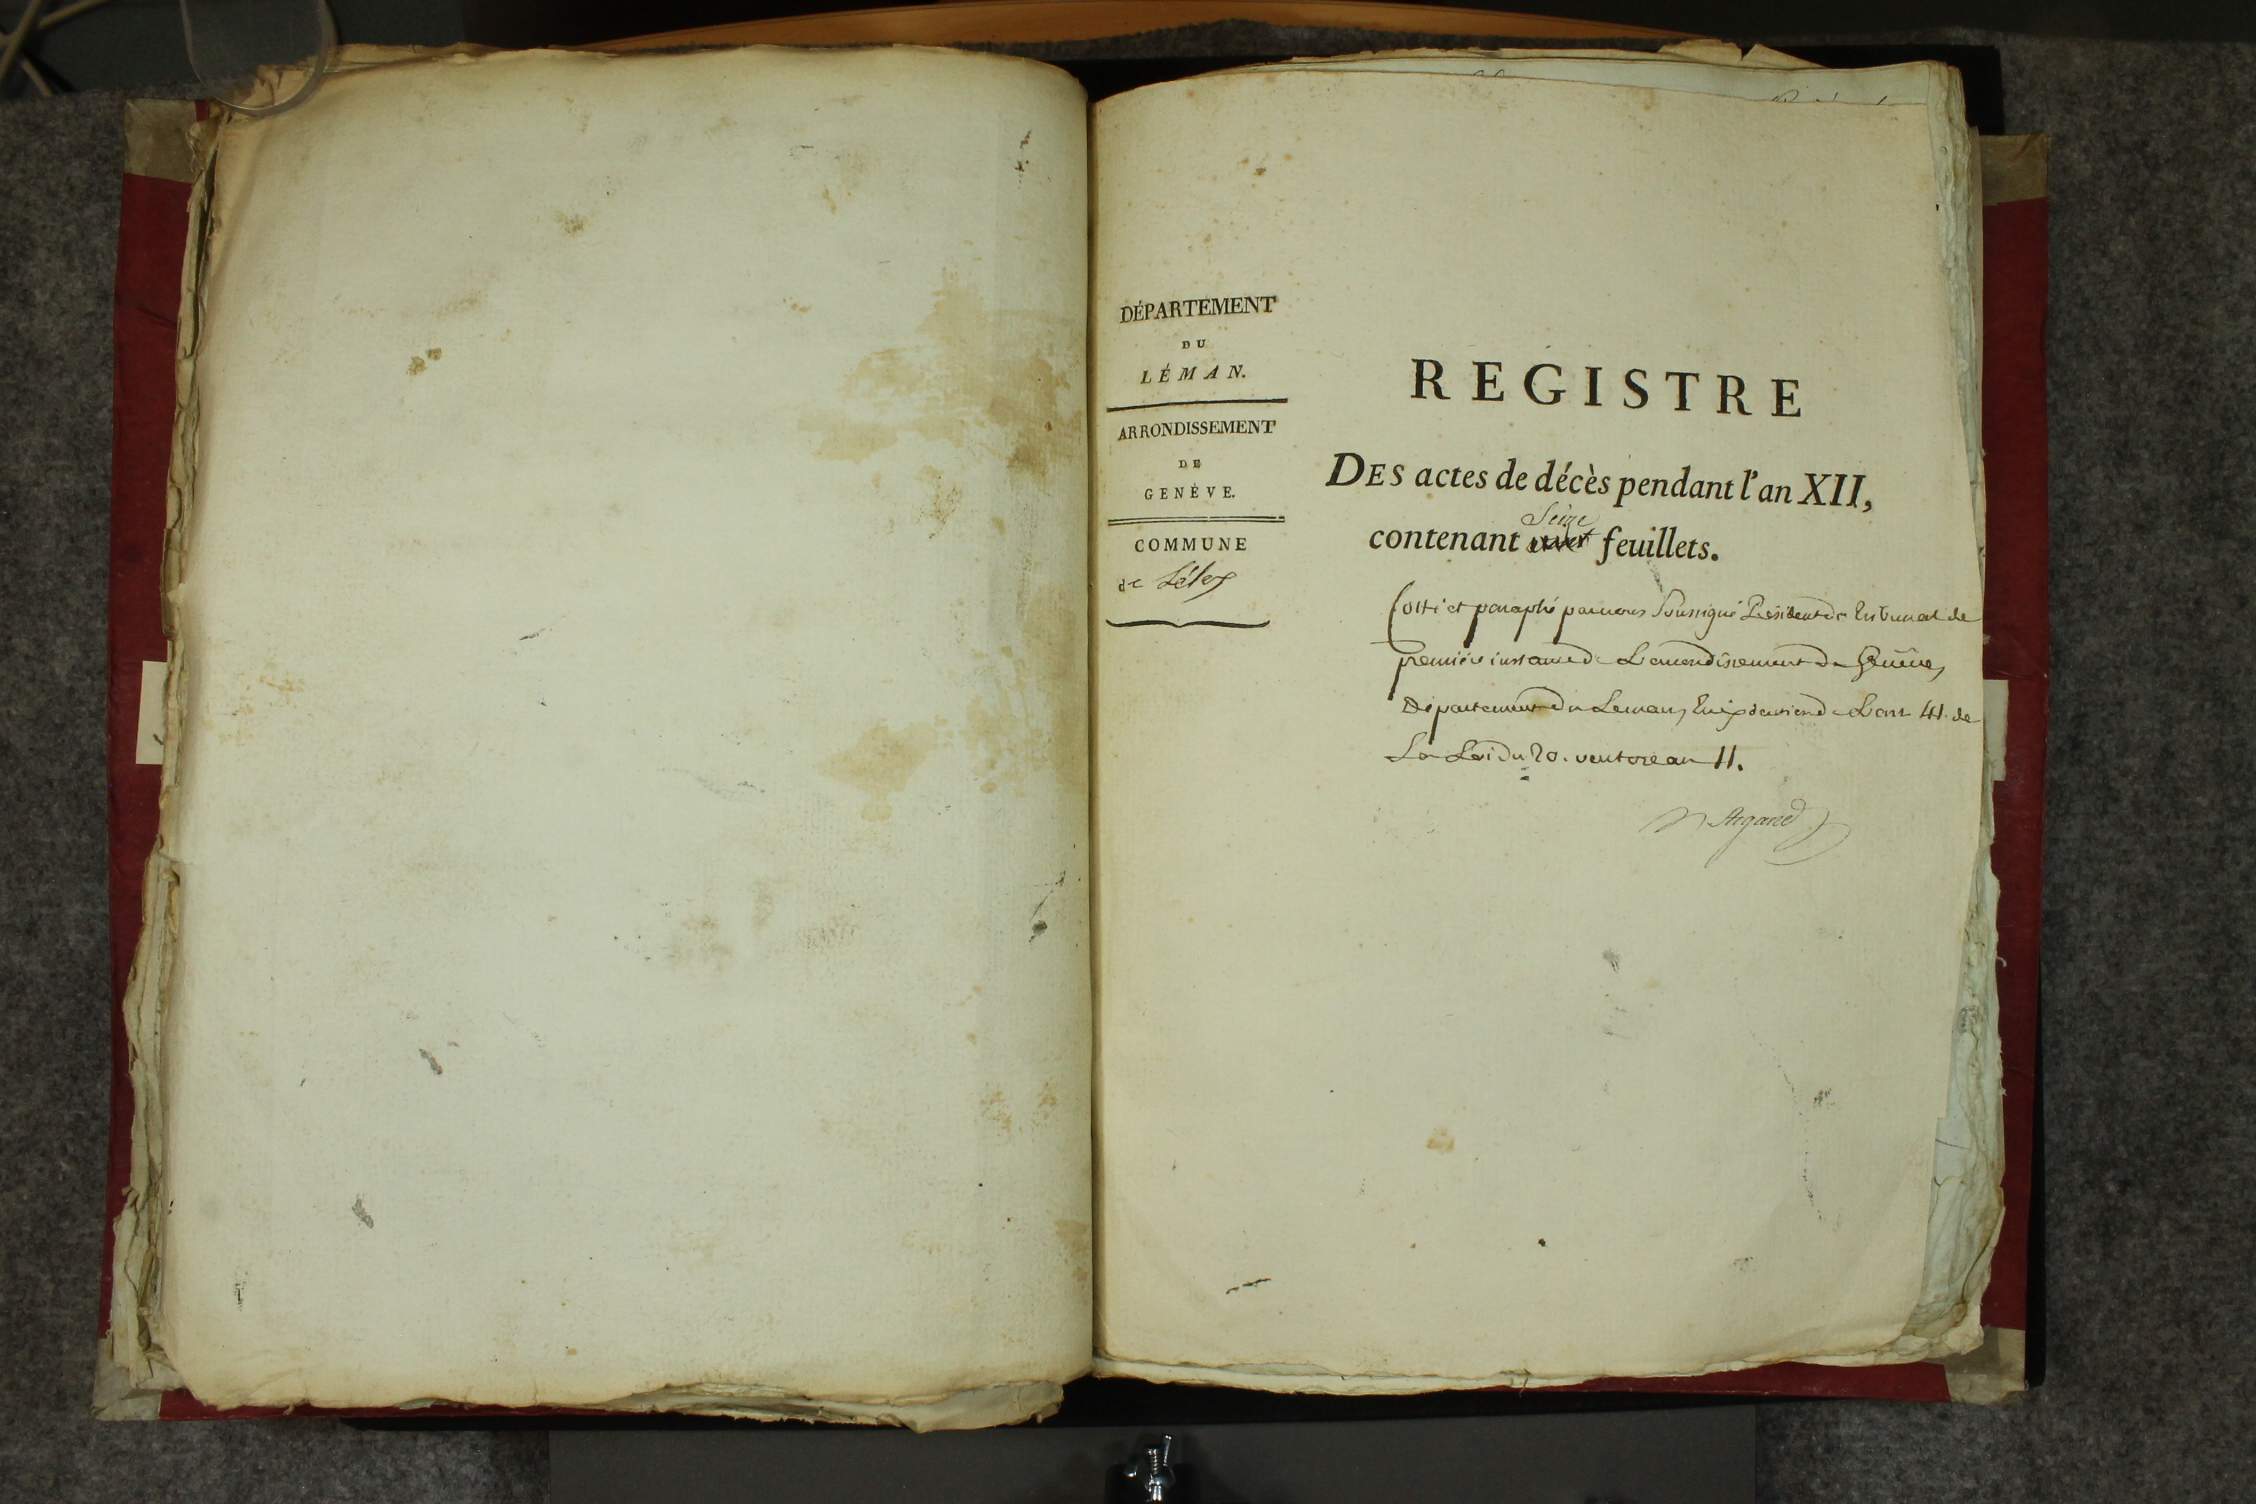 DÉPARTEMENT
DU
LÉMAN.
ARRONDISSEMENT
DE
GENÈVE.
COMMUNE
de Lélex
REGISTRE
DES actes de décès pendant l'an XII,
Seize
contenant feuillets.
Cotté et paraphé par nous Soussigné Président du Tribunal de
première instance de L'arrondissement de Genève,
Département du Leman, En exécution de L'art 41. de
La Loi du 20. ventose an 11.
Argand